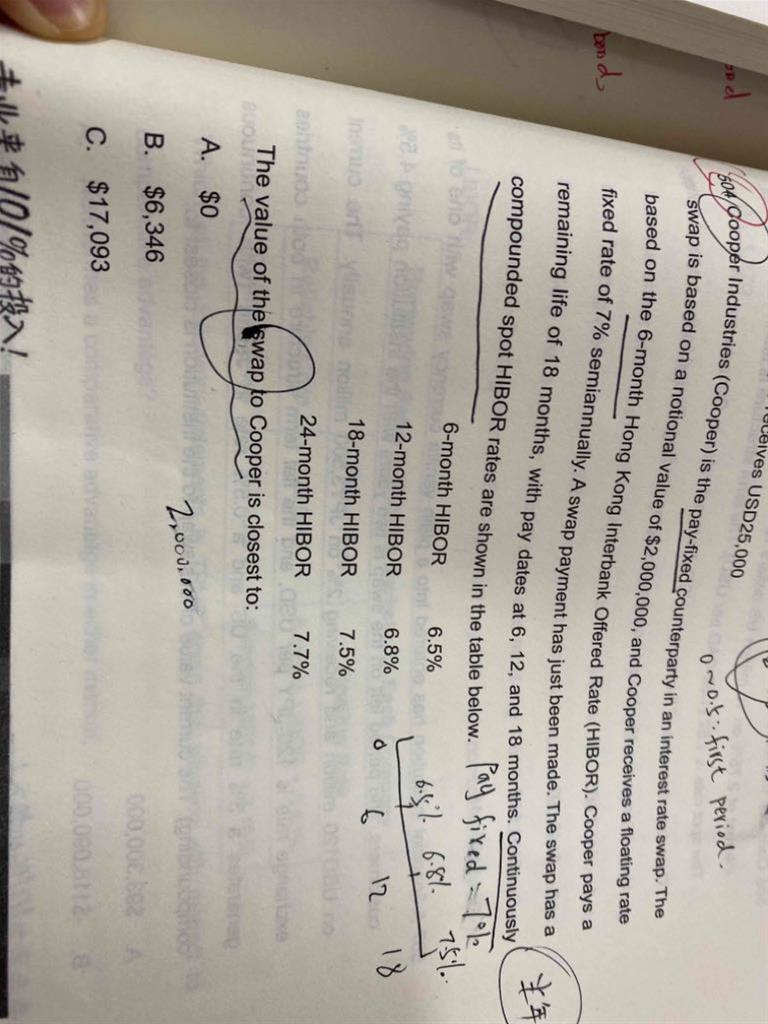 ond
bond
receives USD25,000
0~0.5: first period.
50A Cooper Industries (Cooper) is the pay-fixed counterparty in an interest rate swap. The
swap is based on a notional value of $2,000,000, and Cooper receives a floating rate
based on the 6-month Hong Kong Interbank Offered Rate (HIBOR). Cooper pays a
fixed rate of 7% semiannually. A swap payment has just been made. The swap has a
remaining life of 18 months, with pay dates at 6, 12, and 18 months. Continuously
compounded spot HIBOR rates are shown in the table below.
半年
Pay fixed = 7%
6-month HIBOR 6.5%
12-month HIBOR 6.8%
18-month HIBOR 7.5%
24-month HIBOR 7.7%
6.5% 6.8% 7.5%
0 6 12 18
The value of the swap to Cooper is closest to:
2,000,000
A. $0
B. $6,346
C. $17,093
专业来自101%的投入!